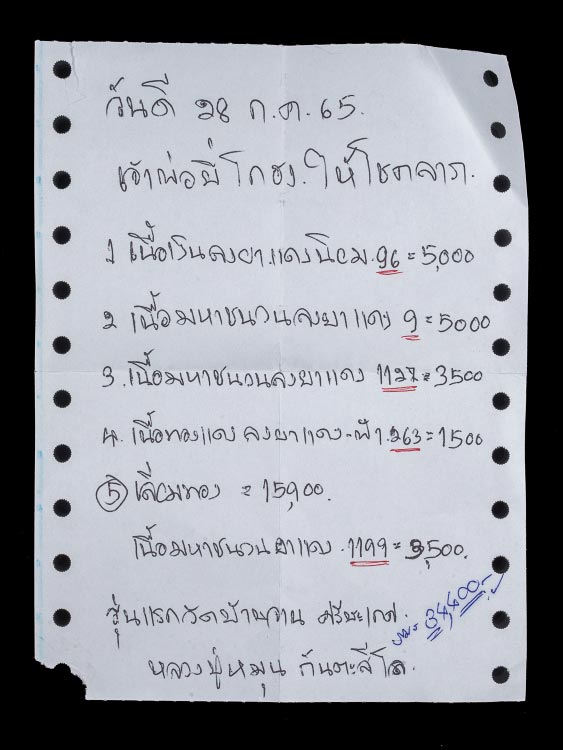 วันดี 28 ก.ค. 65.
เจ้าพ่อยี่โกฮง.ให้โชคลาภ.
1 เนื้อเงินลงยาแดงนิยม.96 = 5,000
2 เนื้อมหาชนวนลงยาแดง 9 = 5000
3. เนื้อมหาชนวนลงยาแดง 1127 = 3500
4. เนื้อทองแดงลงยาแดง-ฟ้า.263 = 1500
5 เลี่ยมทอง = 15,900.
เนื้อมหาชนวนยาแดง.1199 = 3,500.
รุ่นแรกวัดบ้านจาน ศรีสะเกศ.
34,400.-
หลวงปู่หมุน ฐิตะสีโล.